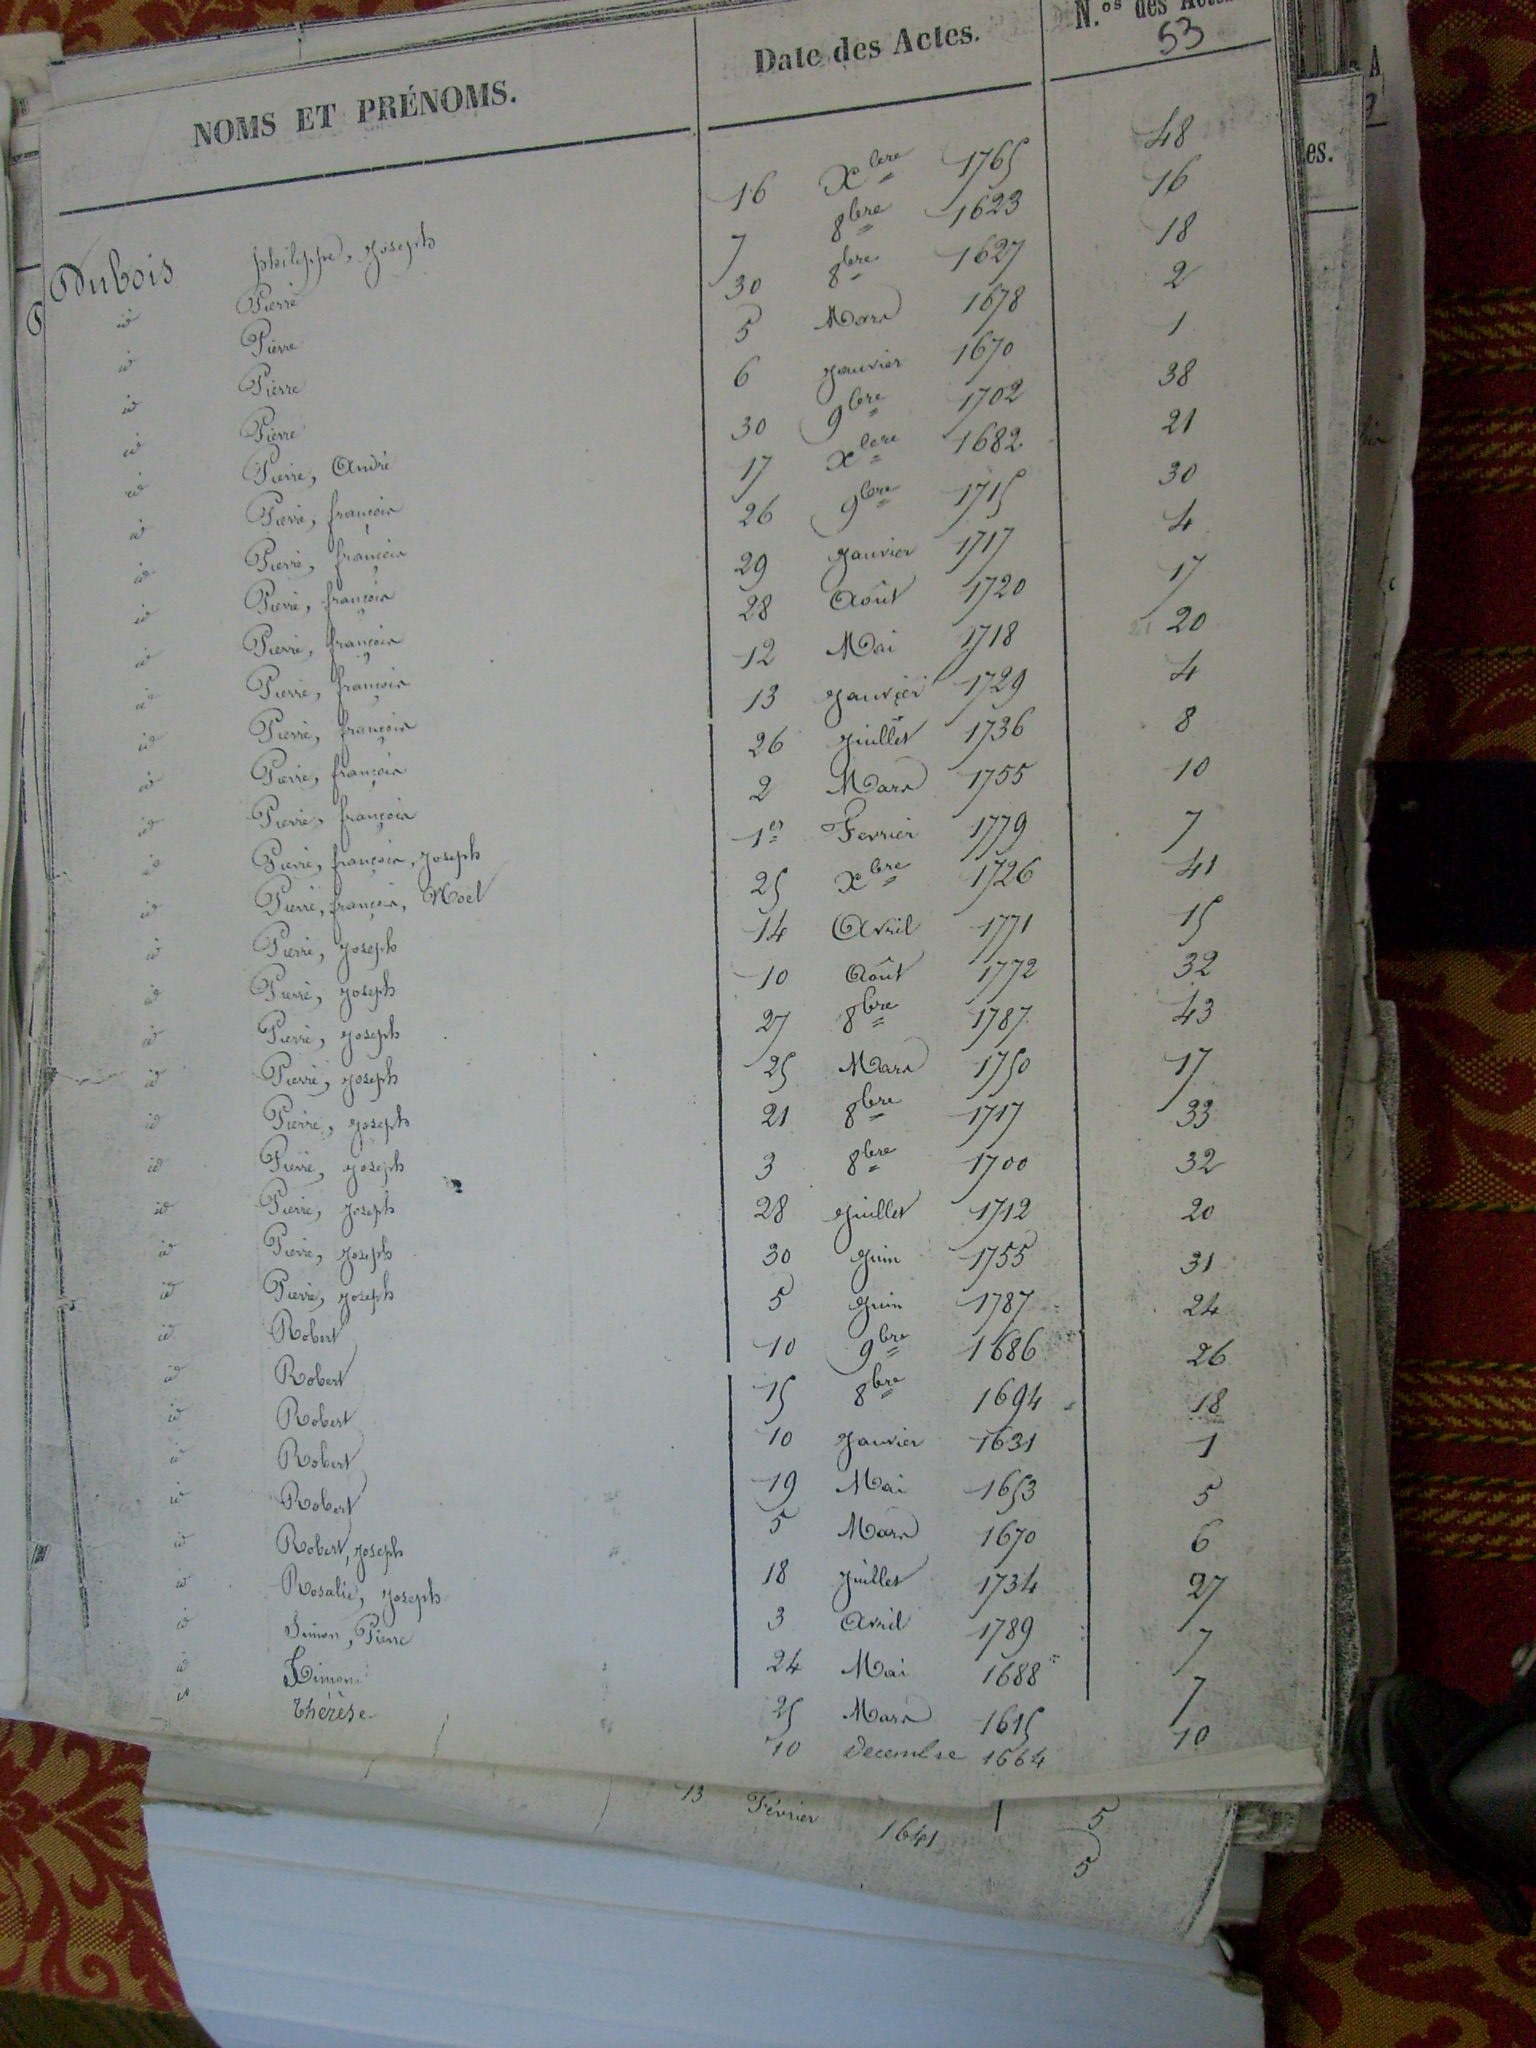 NOMS ET PRÉNOMS. Date des Actes. N.os des Actes
53
Dubois philippe, joseph 16 Xbre 1765 48
id Pierre 7 8bre 1623 16
id Pierre 30 8bre 1627 18
id Pierre 5 Mars 1678 2
id Pierre 6 janvier 1670 1
id Pierre, André 30 9bre 1702 38
id Pierre, françois 17 Xbre 1682 21
id Pierre, françois 26 9bre 1715 30
id Pierre, françois 29 janvier 1717 4
id Pierre, françois 28 Août 1720 17
id Pierre, françois 12 Mai 1718 20
id Pierre, françois 13 janvier 1729 4
id Pierre, françois 26 juillet 1736 8
id Pierre, françois 2 Mars 1755 10
id Pierre, françois, joseph 1er Fevrier 1779 7
id Pierre, françois, Noël 25 Xbre 1726 41
id Pierre, joseph 14 Avril 1771 15
id Pierre, joseph 10 Août 1772 32
id Pierre, joseph 27 8bre 1787 43
id Pierre, joseph 25 Mars 1750 17
id Pierre, joseph 21 8bre 1717 33
id Pierre, joseph 3 8bre 1700 32
id Pierre, joseph 28 juillet 1712 20
id Pierre, joseph 30 juin 1755 31
id Pierre, joseph 5 juin 1787 24
id Robert 10 9bre 1686 26
id Robert 15 8bre 1694 18
id Robert 10 janvier 1631 1
id Robert 19 Mai 1653 5
id Robert 5 Mars 1670 6
id Robert, joseph 18 juillet 1734 27
id Rosalie, joseph 3 Avril 1789 7
id Simon, Pierre 24 Mai 1688 7
id Simon 25 Mars 1615 10
id thérèse 10 Decembre 1664
13 Février 1641 5
5
es.